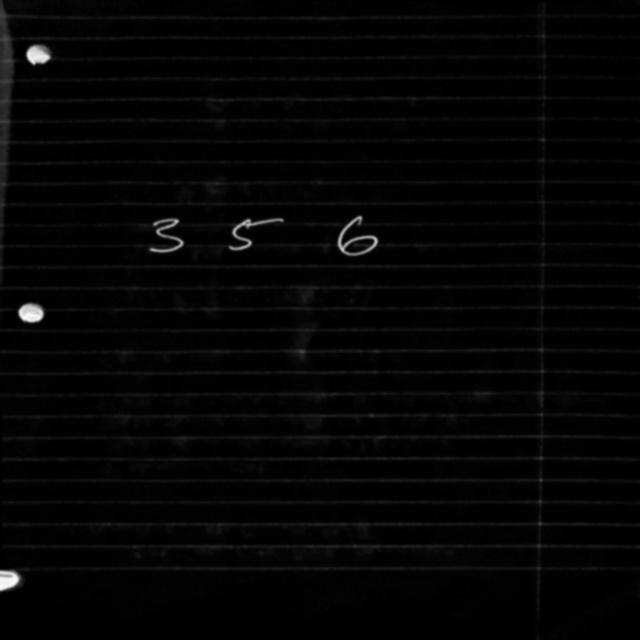 3 5 6